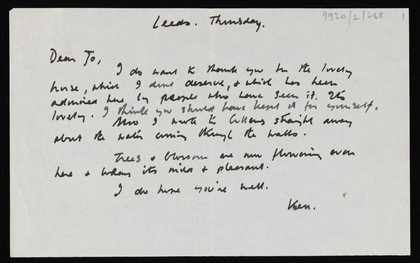 Leeds. Thursday.
9920/2/268
1
Dear Jo,
I do want to thank you for the lovely
horse, which I dont deserve, & which has been
admired here by people who have seen it. Its
lovely. I think you should have kept it for yourself.
Also I wrote to straight away
about the water coming through the walls.
Trees & blossom are now flowering even
here & today its mild & pleasant.
I do hope you're well.
Ken.